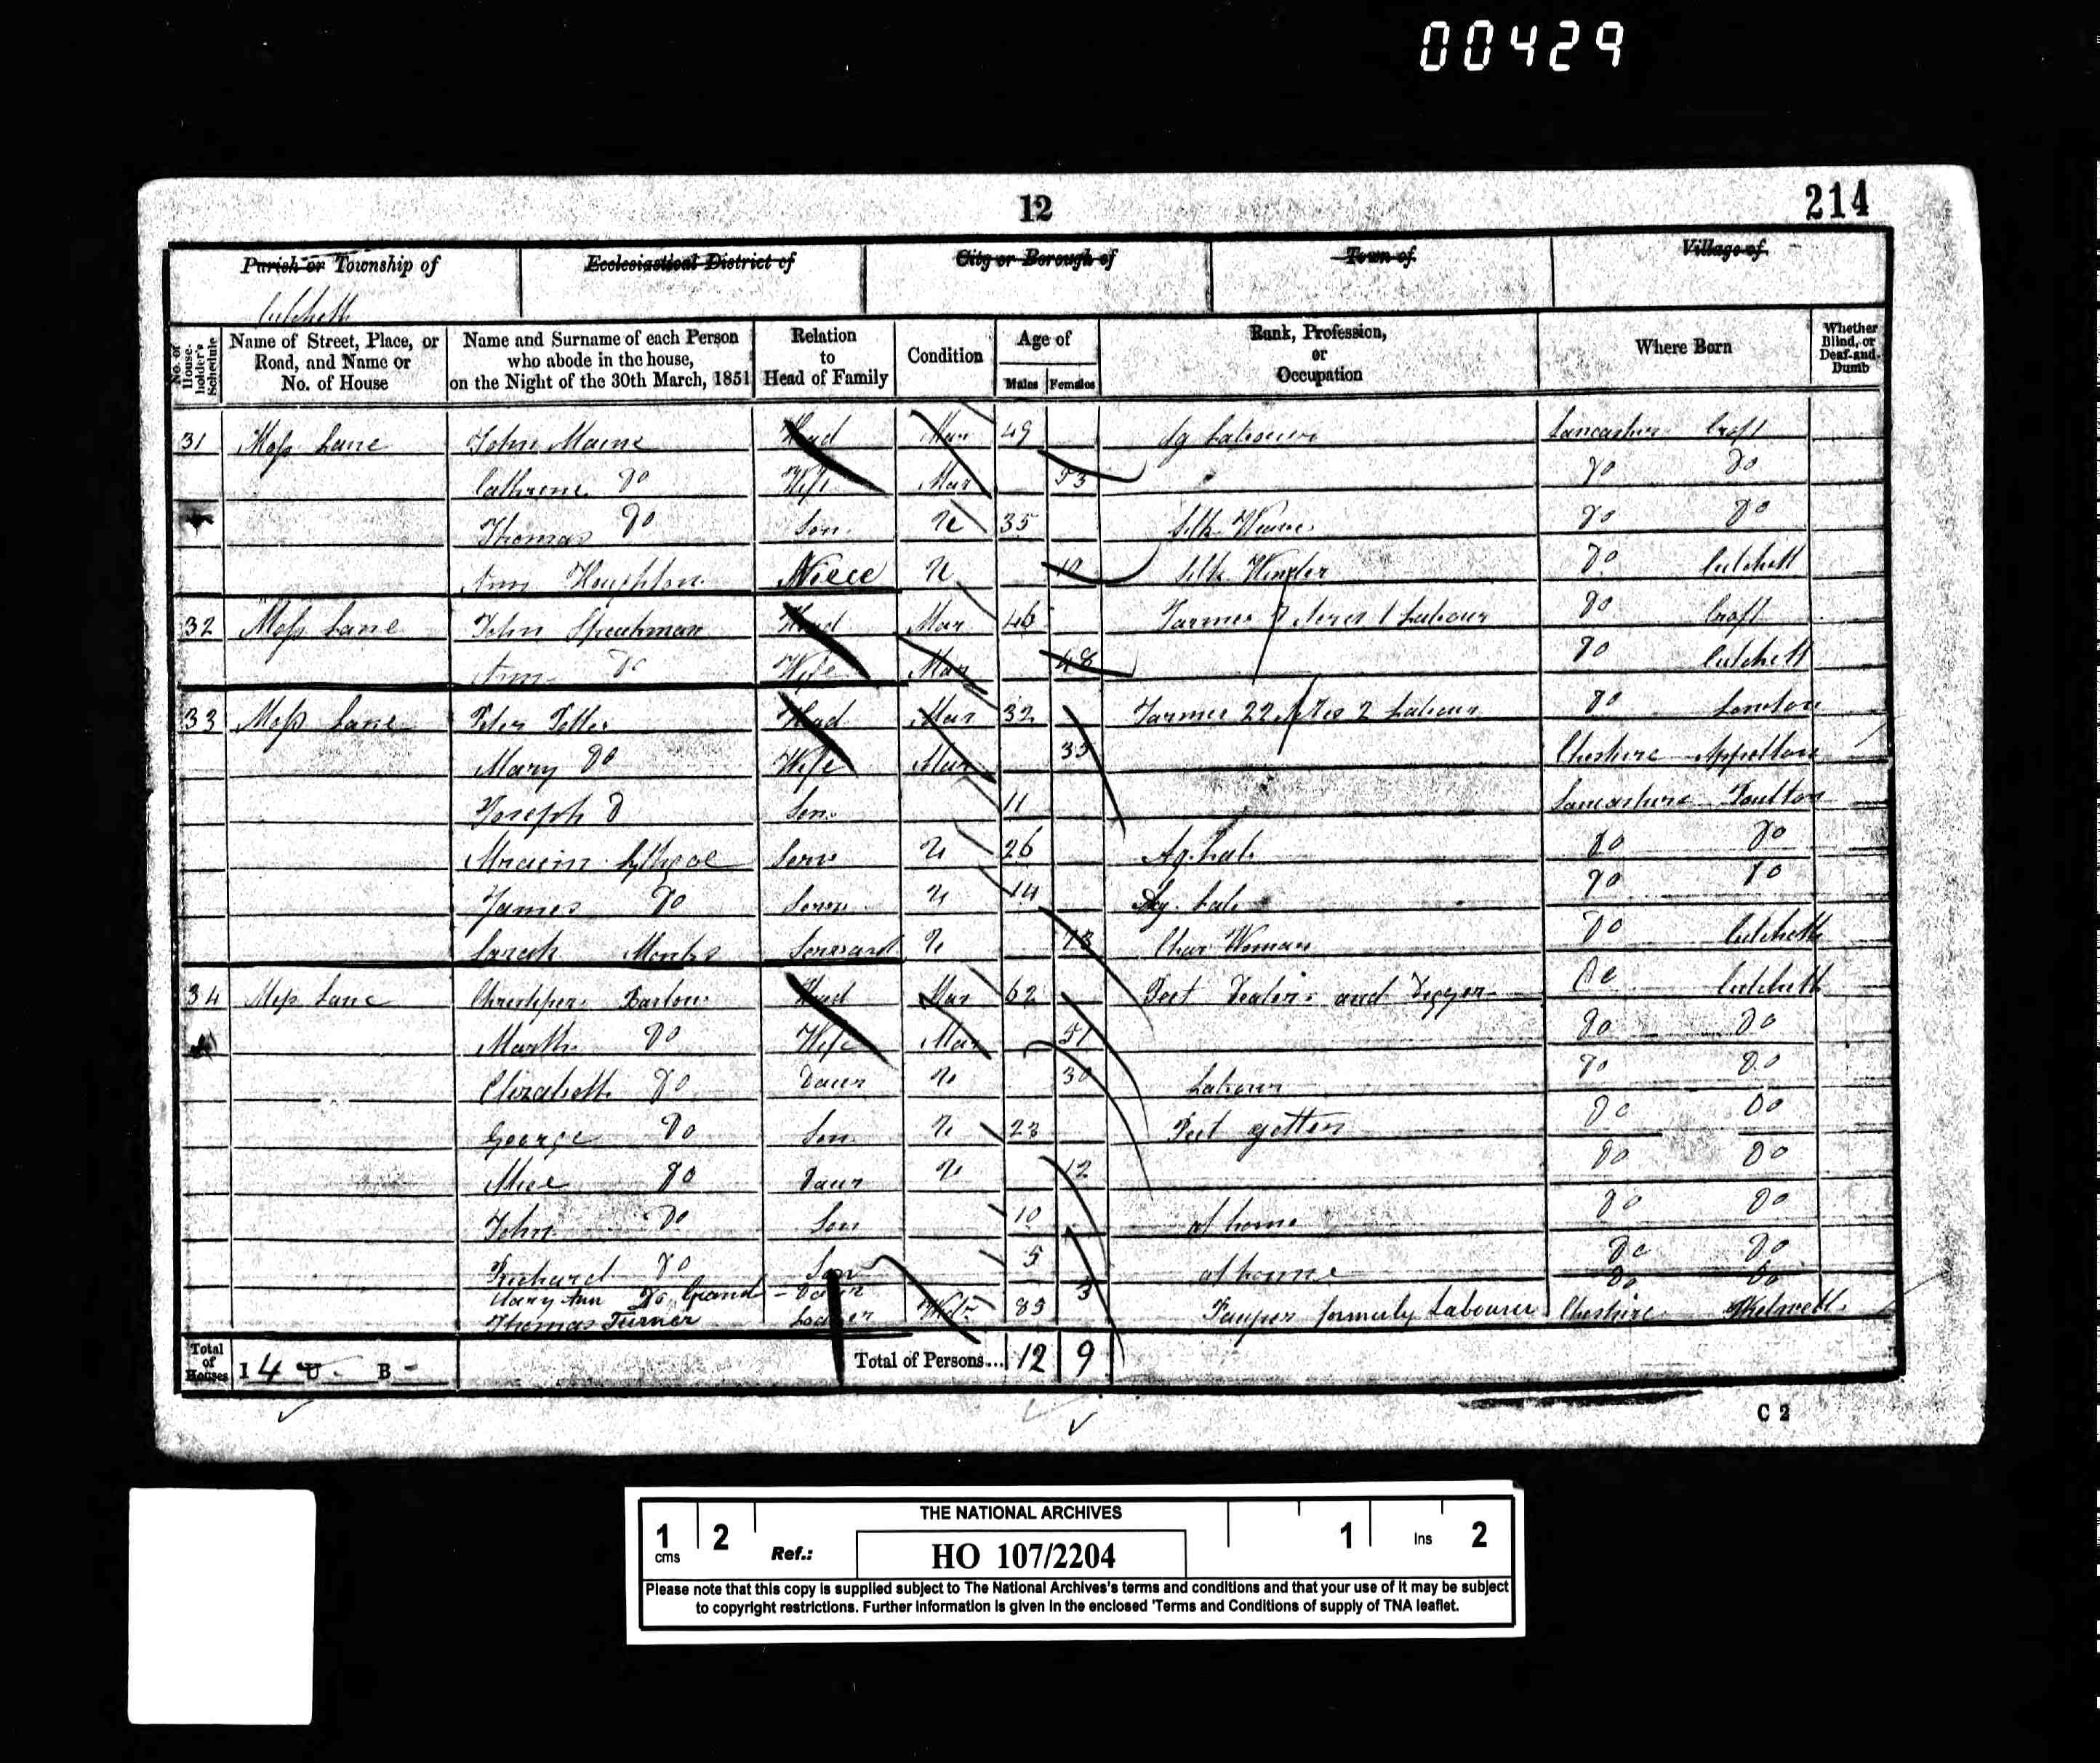 00429
12
214
Parish or Township of Ecclesiastical District of City or Borough of Town of Village of
Culcheth
No. of House-holder's Schedule
Name of Street, Place, or Road, and Name or No. of House
Name and Surname of each Person who abode in the house, on the Night of the 30th March, 1851
Relation to Head of Family
Condition
Age of
Males Females
Rank, Profession, or Occupation
Where Born
Whether Blind, or Deaf-and-Dumb
31 Moss Lane John Head Mar 49 Ag Labourer Lancashire Croft
Do Wife Mar 53 Do Do
Thomas Do Son U 35 Silk Do Do
Ann Houghton Niece U Silk Winder Do Culcheth
32 Moss Lane John Speakman Head Mar 46 Farmer 7 Acres 1 Labour Do Croft
Ann Do Wife Mar 48 Do Culcheth
33 Moss Lane Peter Head Mar 32 Farmer 22 Acres 2 Labour Do
Mary Do Wife Mar 35 Cheshire Appelton
Joseph D Son 11 Lancashire Poulton
Lythgoe Serv U 26 Ag. Lab Do Do
James Do Serv U 14 Ag. Lab Do Do
Sarah Monks U Char Woman Do Culcheth
34 Moss Lane Barlow Head Mar 62 Peet Dealer and Digger Do Culcheth
Martha Do Wife Mar 51 Do Do
Elizabeth Do Daur U 30 Labour Do Do
George Do Son U 23 Peet getter Do Do
Alice Do Daur U 12 Do Do
John Do Son 10 at home Do Do
Richard Do Son 5 at home Do Do
Mary Ann Do Grand-Daur 3 Do Do
Thomas Turner Lodger Widr Pauper formerly Labourer Cheshire
Total of Houses I 4 U - B - Total of Persons... 12 9
C 2
THE NATIONAL ARCHIVES
1 cms 2 Ref.: HO 107/2204 1 Ins 2
Please note that this copy is supplied subject to The National Archives's terms and conditions and that your use of it may be subject
to copyright restrictions. Further information is given in the enclosed 'Terms and Conditions of supply of TNA leaflet.